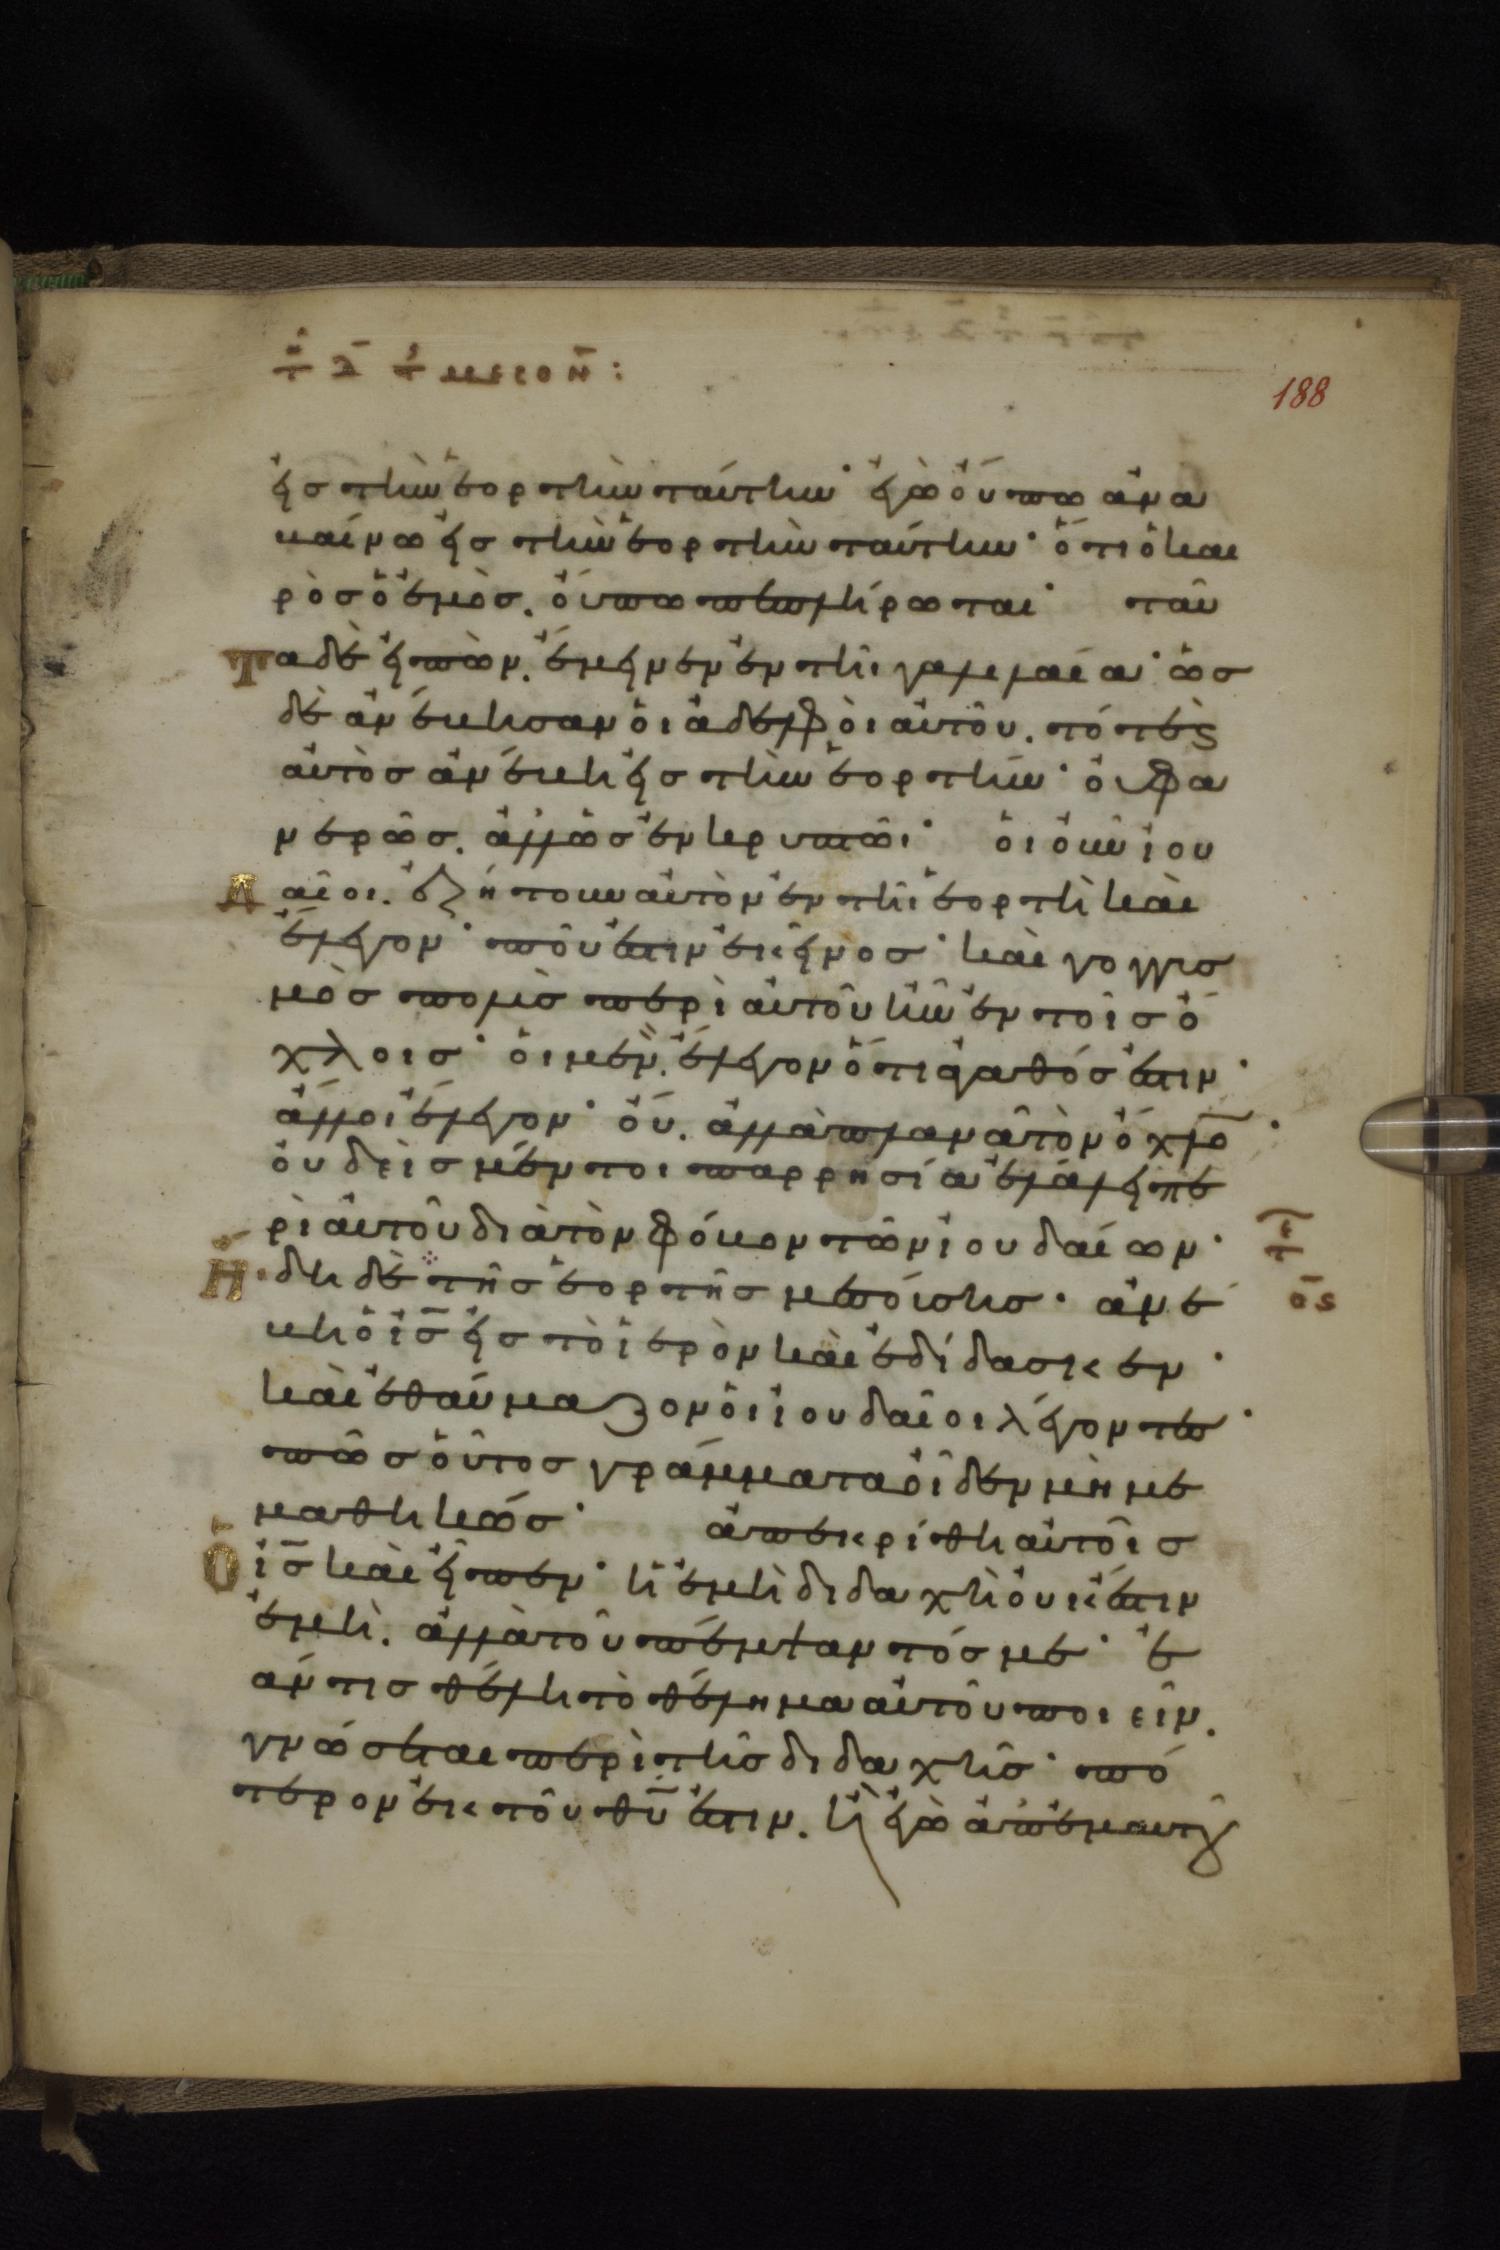 τῇ δ τῆς μεσοπ:
188
εἰς τὴν ἑορτὴν ταύτην· ἐγὼ οὔπω ἀνα
βαίνω εἰς τὴν ἑορτὴν ταύτην· ὅτι ὁ και
ρὸσ ὁ ἐμὸσ. οὔπω πεπλήρωται· ταῦ
τα δὲ εἰπὼν. ἔμεινεν ἐν τῆι γαλιλαίαι· ὡσ
δὲ ἀνέβησαν ὁι ἀδελφὸι αὐτοῦ. τότε κ(αὶ)
αὐτὸσ ἀνέβη εἰσ τὴν ἑορτήν· οὐ φα
νερῶσ. ἀλλ' ὡσ ἐν κρυπτῶι· ὁι οὖν ἰου
δαῖοι. ἐζήτουν αὐτὸν ἐν τῆι ἑορτῆ καὶ
ἔλεγον· ποῦ ἐστιν ἐκεῖνοσ· καὶ γογγυσ
μὸσ πολὺσ περὶ αὐτοῦ ἦν ἐν τοῖσ ὄ
χλοισ· ὁι μὲν. ἔλεγον ὅτι ἀγαθόσ ἐστιν·
ἄλλοι ἔλεγον· οὔ. ἀλλὰ πλανᾶ τὸν ὄχλο(ν)·
οὐδεὶσ μέντοι παρρησία ἐλάλει πε
ρὶ αὐτοῦ διὰ τὸν φόβον τῶν ἰουδαίων·
Ἤδη δὲ τῆσ ἑορτῆσ μεσούσησ· ἀνέ
βη ὁ ἰσ εἰσ τὸ ἱερὸν καὶ ἐδίδασκεν·
καὶ ἐθαύμαζον ὁι ἰουδαῖοι λέγοντεσ·
πῶσ οὗτοσ γράμματα οἶδεν μὴ με
μαθηκώσ· ἀπεκρίθη αὐτοῖσ
ὁ ἰσ καὶ εἶπεν· ἡ ἐμὴ διδαχὴ οὐκ ἔστιν
ἐμὴ. ἀλλὰ τοῦ πέμψαντόσ με· ἐ
άν τισ θέλη τὸ θέλημα αὐτοῦ ποιεῖν.
γνώσεται περὶ τῆσ διδαχῆσ· πό
τερον ἐκ τοῦ θυ ἐστιν. ἢ ἐγὼ ἀπ' ἐμαυτοῦ